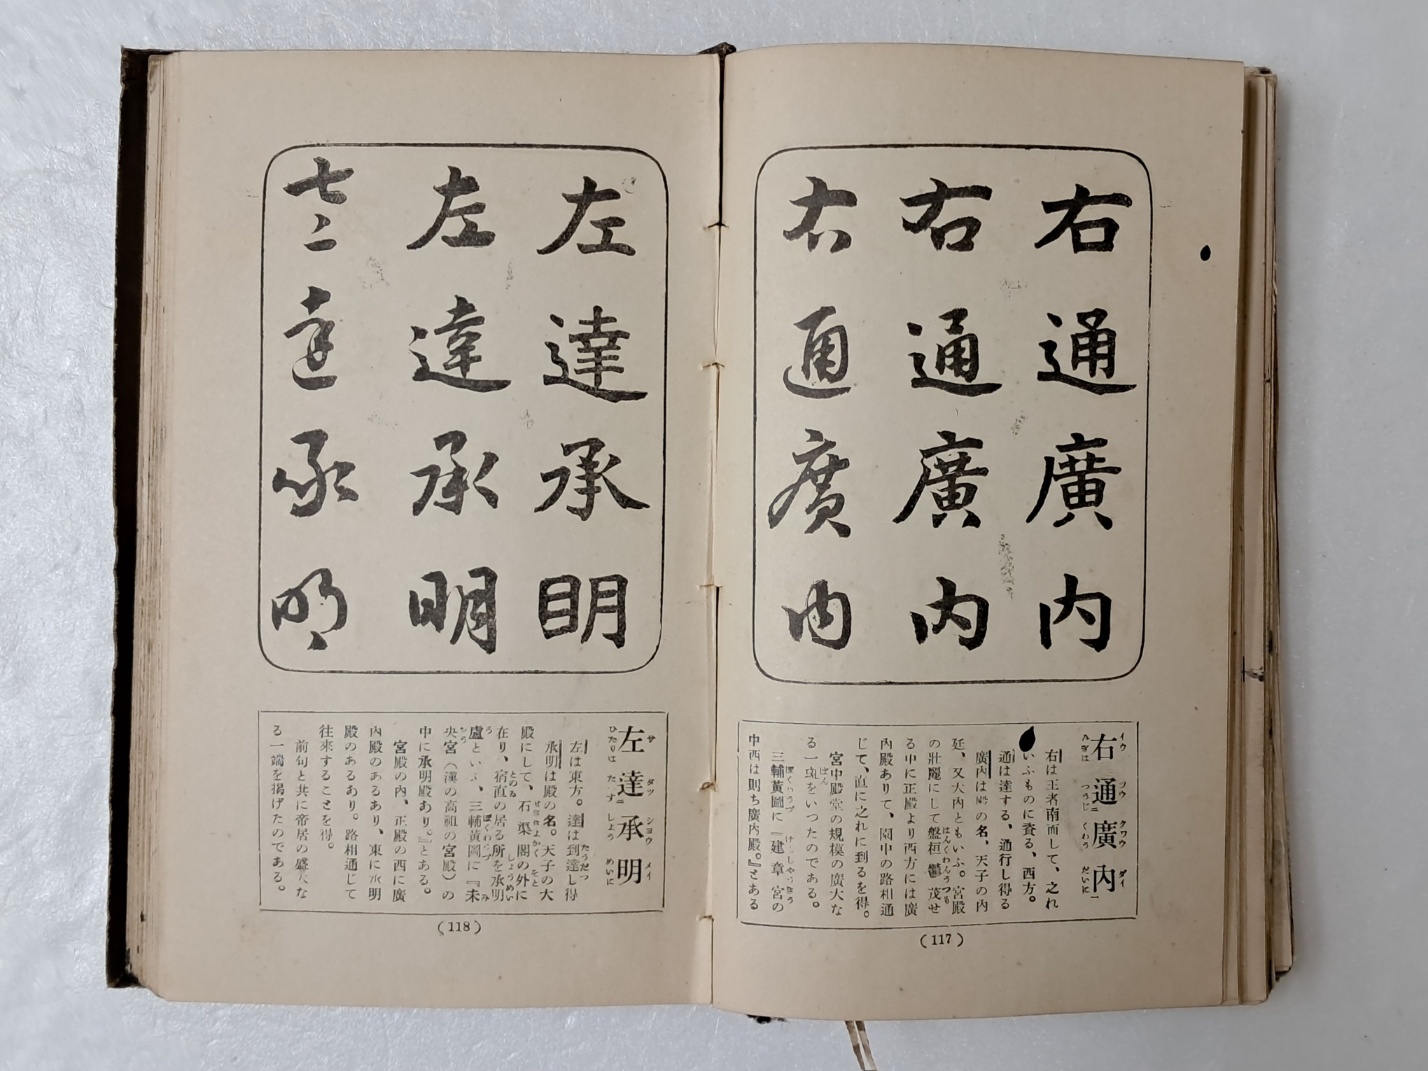 右通廣内
右通廣内
右通廣内
右通廣內
イウ ツウニ クワウ ダイ
つうじ くわう だいに
右は王者南面して、之れ
いふものに賽る、西方。
通は達する、通行し得る
廣內は殿の名、天子の內
廷、又大內ともいふ。宮殿
の壯麗にして盤桓鬱茂せ
はんくわんうつも
る中に正殿より西方には廣
內殿ありて、園中の路相通
じて、直に之れに到るを得。
宮中殿堂の規模の廣大な
る一斑をいつたのである。
ぱん
三輔黃圖に『建章宮の
中西は則ち廣內殿。』とある
(117)
左達承明
左達承明
左達承明
左達承明
サ タツニ シヨウ メイ
ひだりは たつす しよう めいに
左は東方。達は到達し得
承明は殿の名。天子の大
殿にして、石渠閣の外に
在り、宿直の居る所を承明
盧といふ、三輔黃圖に『未
央宮(漢の高祖の宮殿)の
中に承明殿あり。』とある。
宮殿の內、正殿の西に廣
內殿のあるあり、東に承明
殿のあるあり。路相通じて
往來することを得。
前句と共に帝居の盛大な
る一端を揭げたのである。
(118)